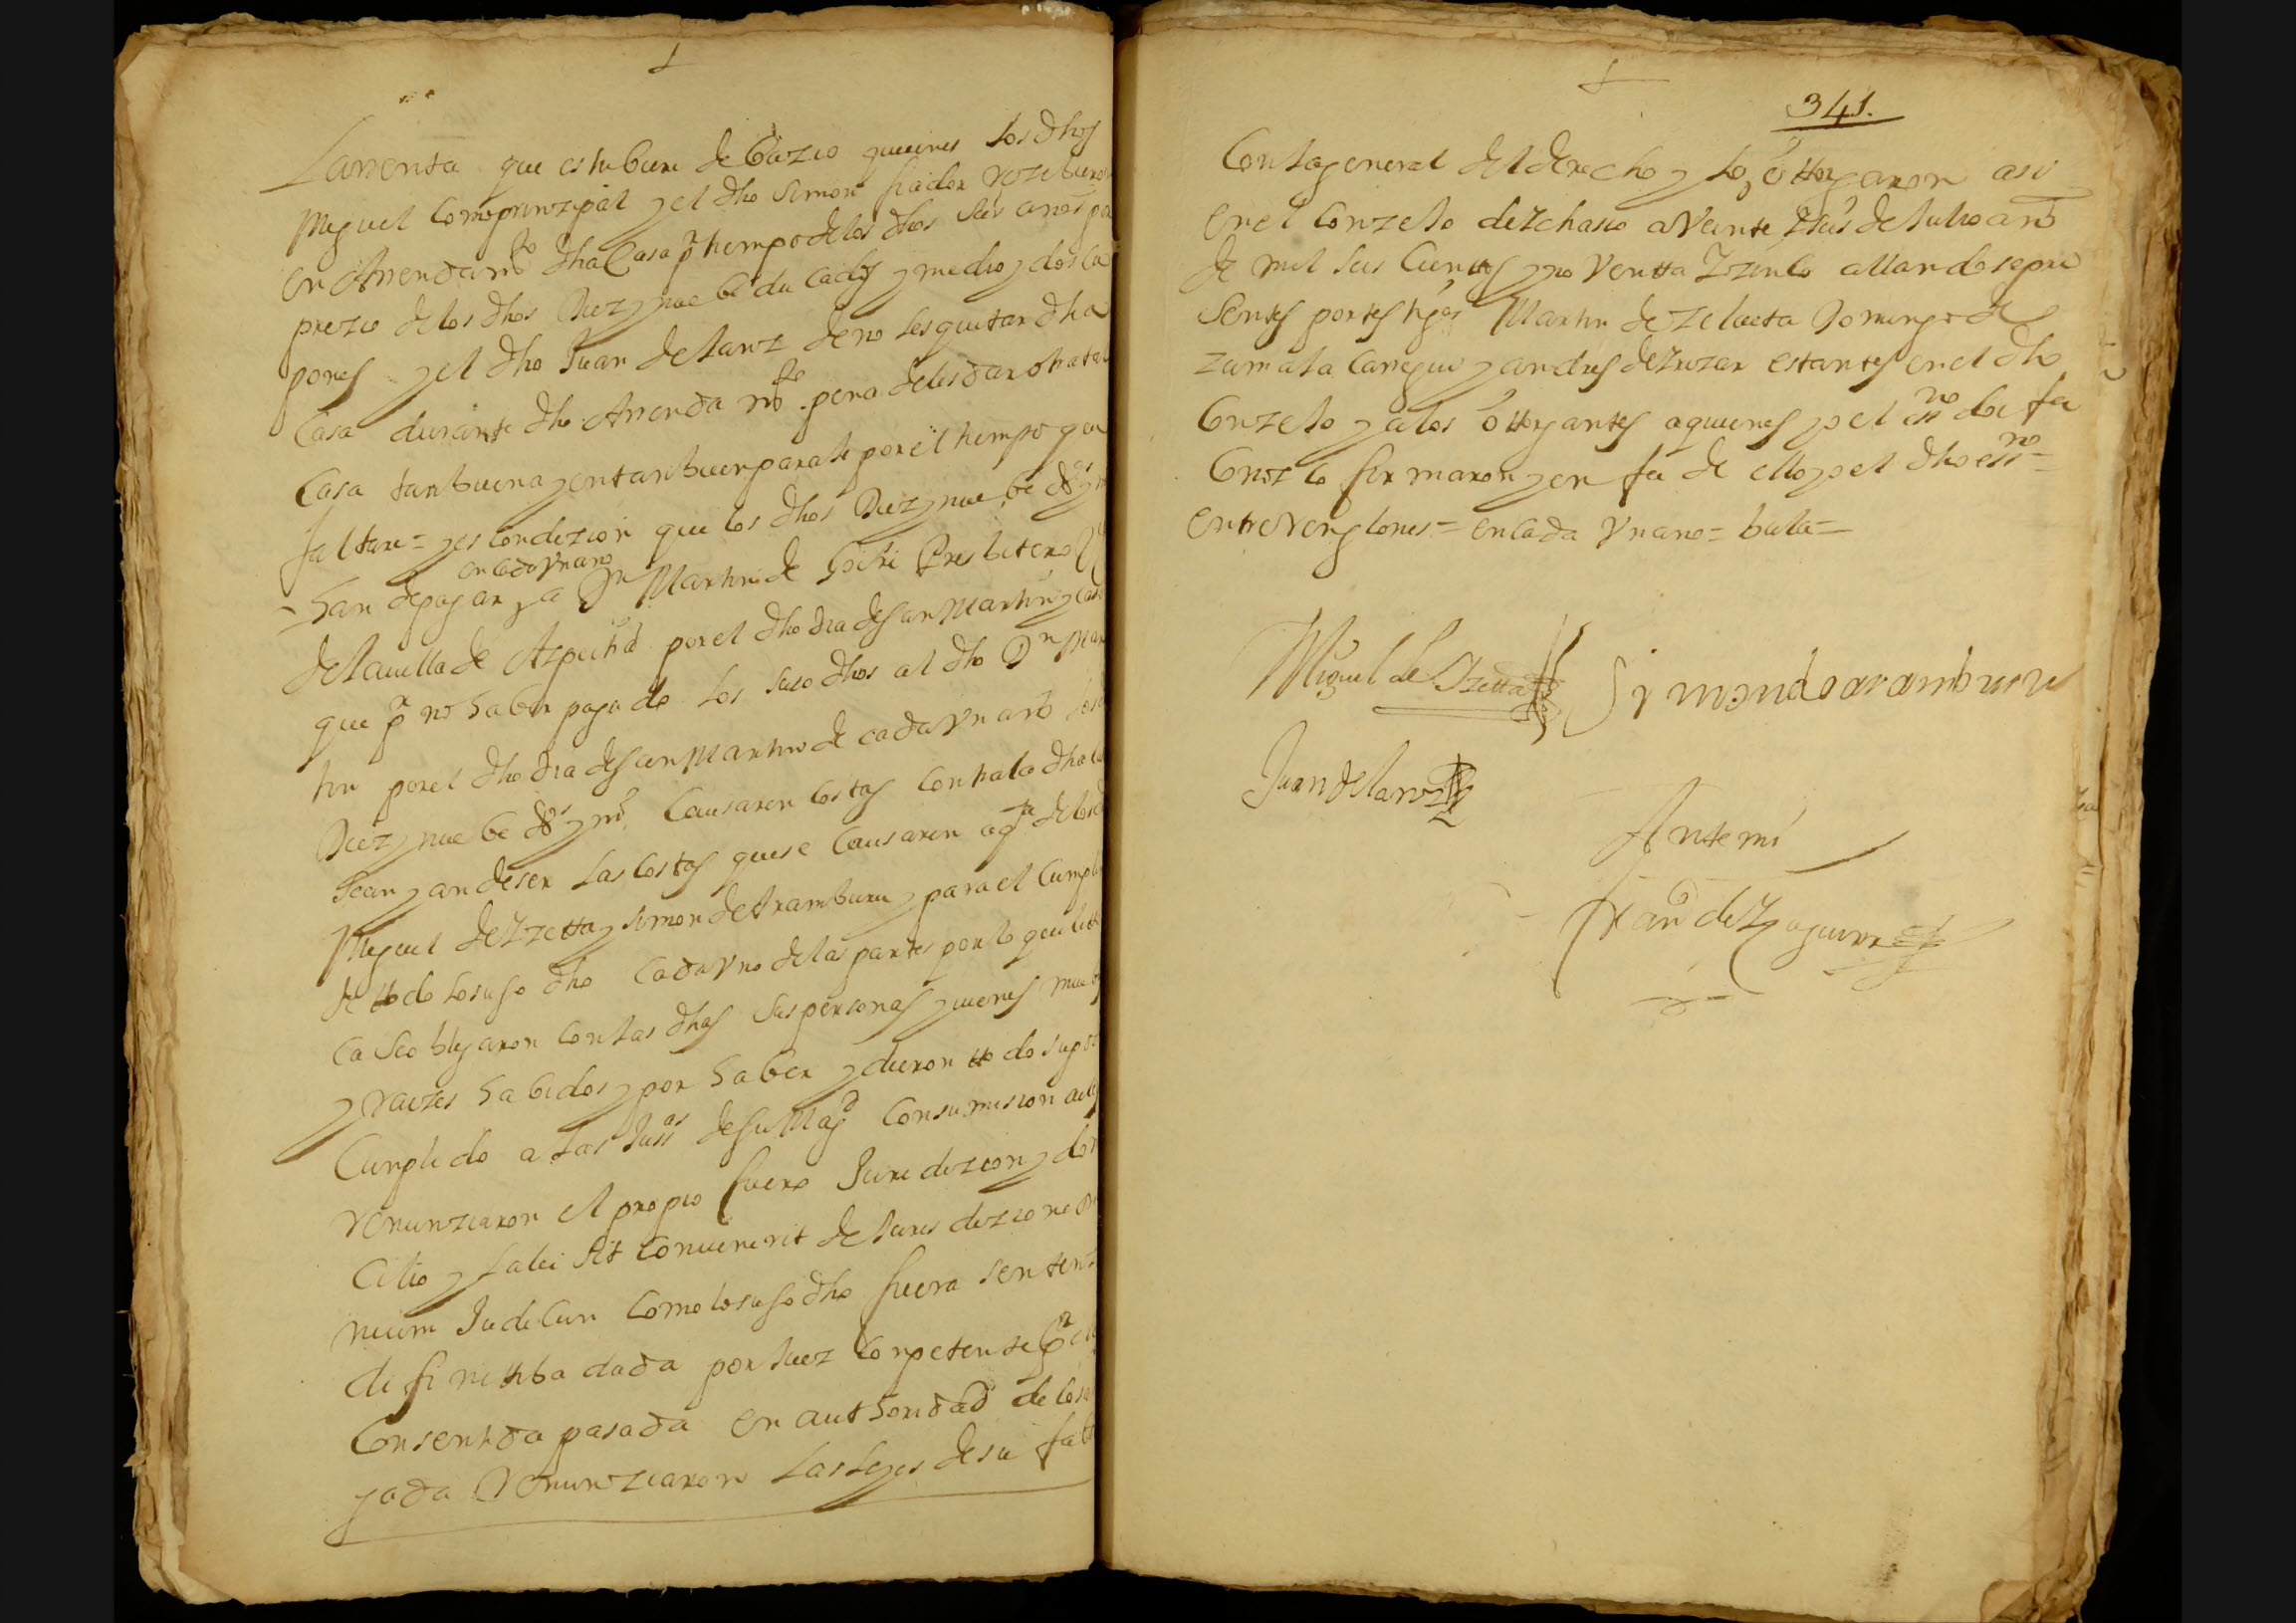 La renta que estubiere de bazio quienes los dhos
Miguel como prinzipal y el dho Simon fiador rezebieron
en Arrendamto dha Casa pr tiempo de los dhos seis anos por
prezio de los dhos Diez y nuebe ducados y medio y dos ca
pones y el dho Juan de Lanz de no les quitar dha
Casa durante dho Arrendamto pena de les dar otra tal
Casa tan buena y en tan buen parate por el tiempo que
faltare = y es condizion que los dhos Diez y nuebe dos y mo
en cada Un ano
han de pagar y a Dn Martin de Goiri Presbitero
de la villa de Azpeitia por el dho dia de San Martin y caso
que pr no haber pagado los suso dhos al dho Dn Mar
tin por el dho dia de San Martin de cada Un ano los
Diez y nuebe dos y mo Causaren costas contra la dha
Juan y an de ser las costas que se Causaren a qta de los
Miguel de Yzetta y Simon de Aramburu y para el cumpli
de ttodo lo suso dho Cada Uno de las partes por lo que le tt
ca se obligaron con las dhas sus personas y vienes muebles
y raizes habidos y por haber y dieron ttodo su poder
Cunplido a las Jussas de su Magd con sumision a ellas
renunziaron el propio fuero Juridizion y domi
cilio y la lei sit convenerit de Jurisdizione on
nium Judicun como lo suso dho fuera sentenz
difinittiba dada por Juez conpetente pr
Consentida pasada en authoridad de cosa
gada Renunziaron las Leyes de su fabor
341.
Con la general del derecho y lo ottorgaron asi
en el Conzejo de Ychasso a Veinte y seis de Julio ano
de mil seis Cienttos y no Ventta Y zinco allandose pre
sentes por testigos Martin de Zelaeta Domingo de
zamata Carregui y andres de Yrozar estantes en el dho
Conzejo y a los ottorgantes a quienes yo el essno doi fee
Conozco firmaron y en fee de ello yo el dho essno =
entre Renglones = en cada Un ano = bala =
Miguel de Yzetta
Simon de aramburu
Juan de Lanz
Ante mi
Franco de Yzaguirre